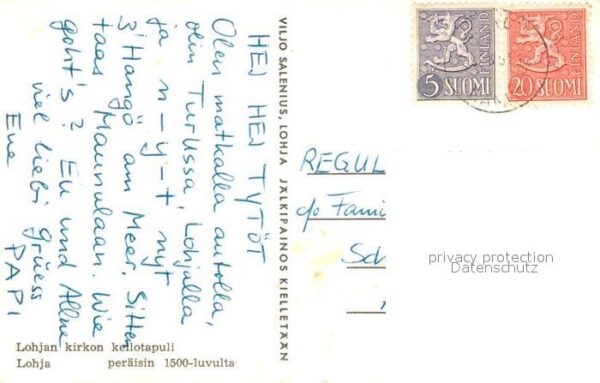 HEJ HEJ TYTÖT
Olen matkalla autolla,
olin Turussa, Lohjalla
ja n-y-t nyt
3' Hangö am Meer. Sitten
taas Maunulaan. Wie
goht's? Eu und Allne
viel liebi grüess
Eue
PAPI
Lohjan kirkon kellotapuli
Lohja peräisin 1500-luvulta
VILJO SALENIUS, LOHJA JÄLKIPAINOS KIELLETÄÄN
5 SUOMI
FINLAND
20 SUOMI
FINLAND
REGUL
c/o Fami
privacy protection
Datenschutz